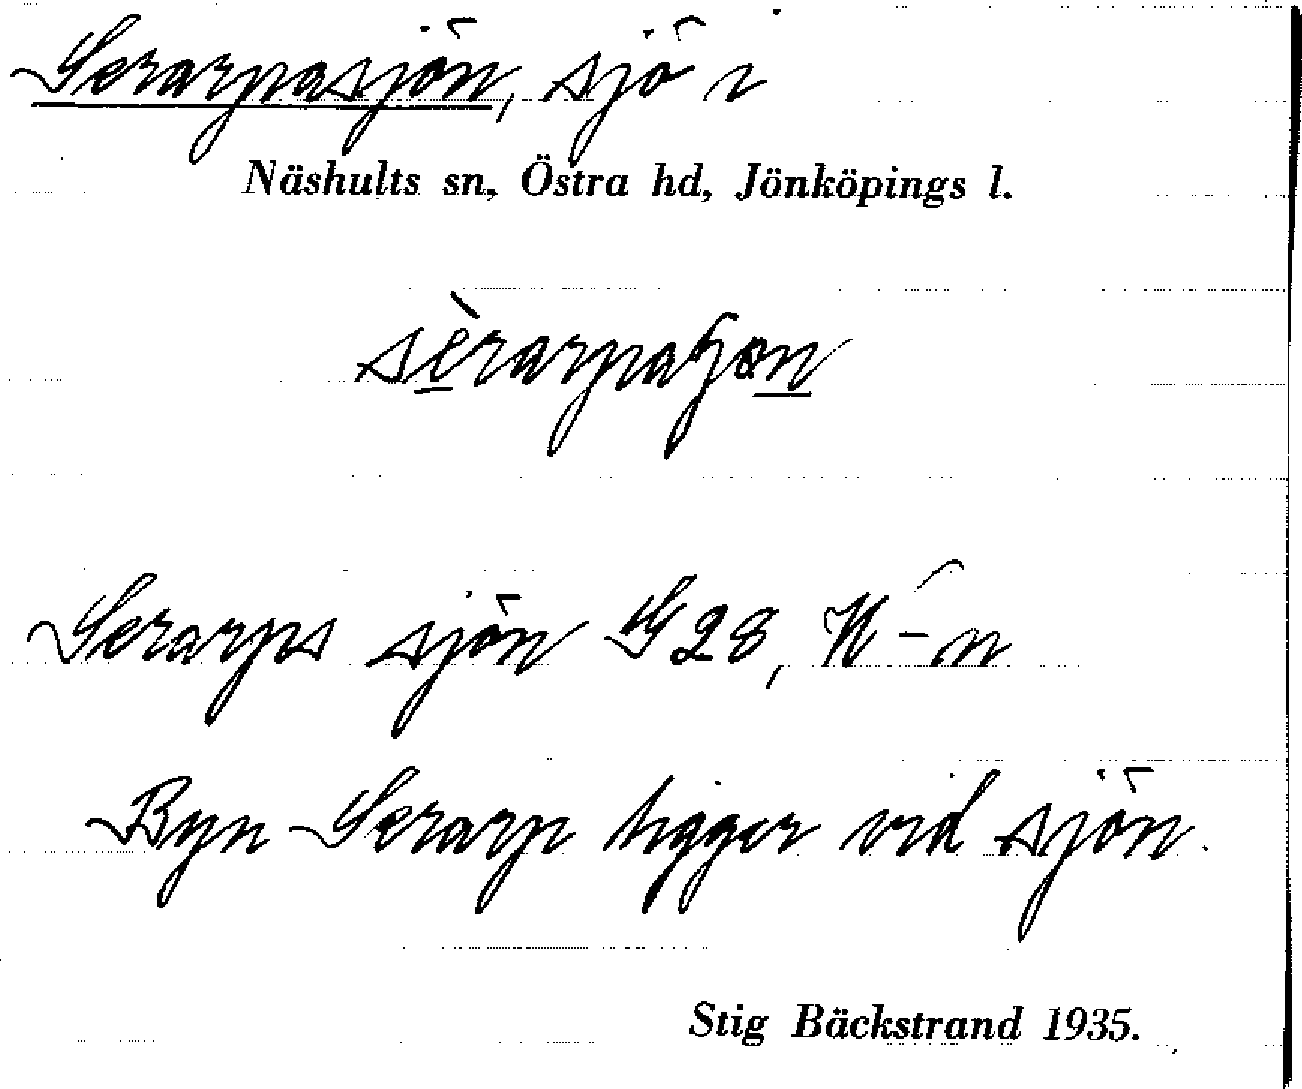 Serarpasjön, sjö i
Näshults sn, Östra hd, Jönköpings l.
Serarps sjön G28, K-n
Byn Serarp ligger vid sjön.
Stig Bäckstrand 1935.